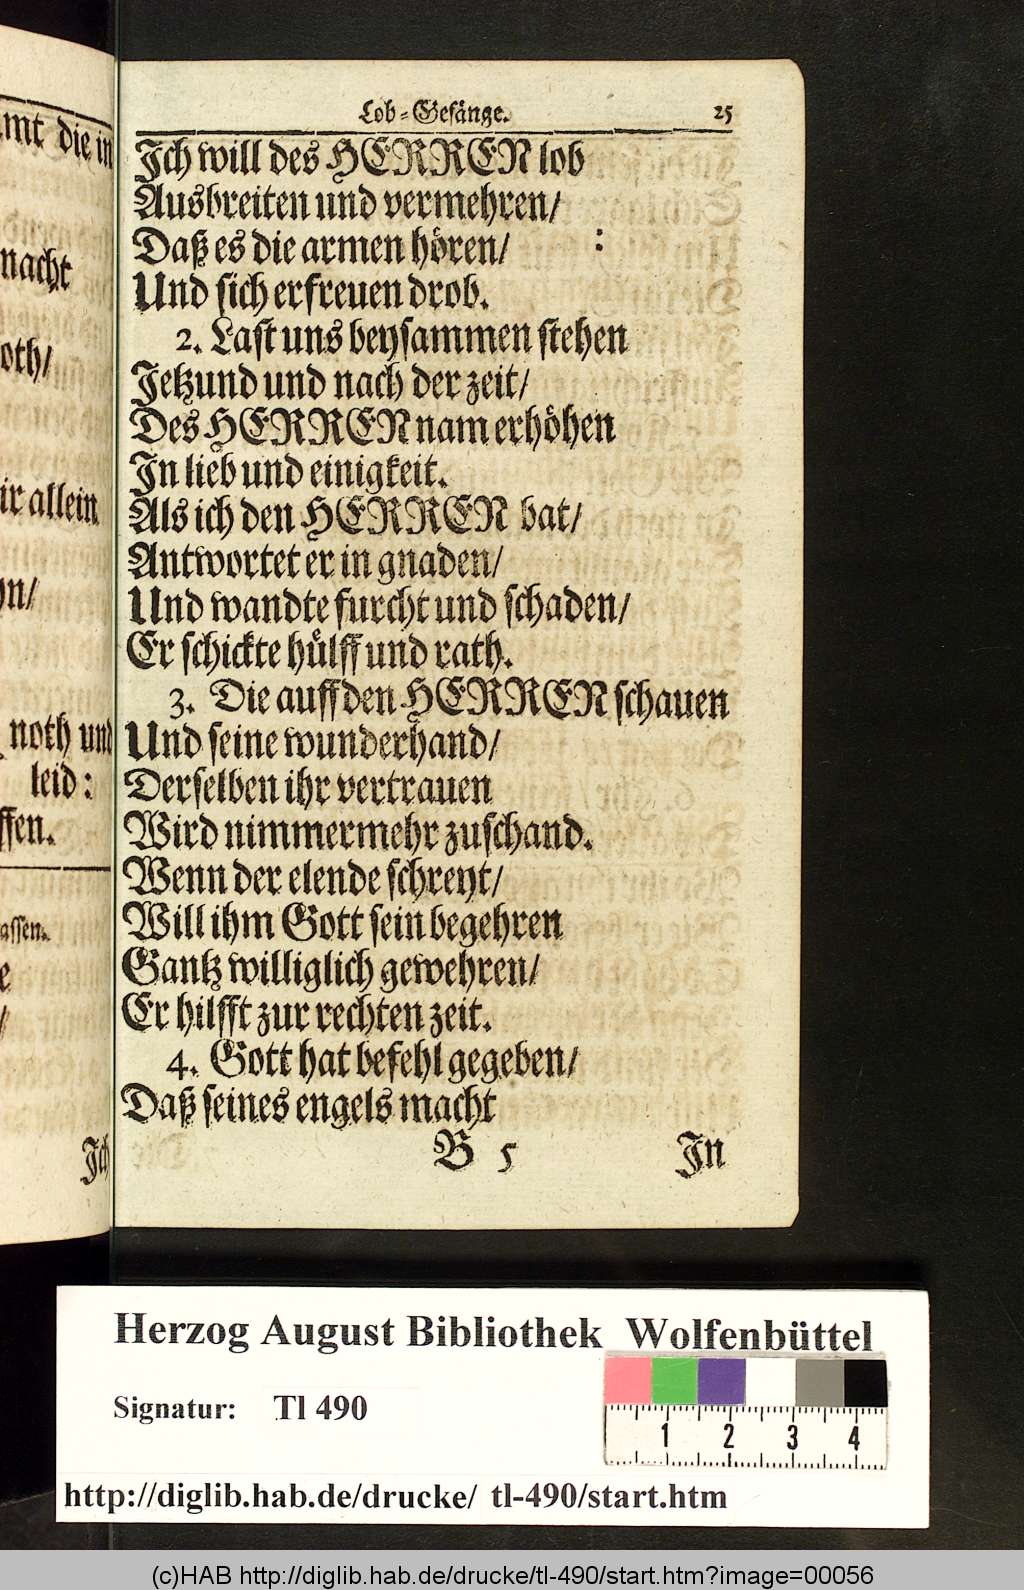 amt die in
nacht
oth/
ir allein
yn/
noth und
leid:
ffen.
assen.
e
/
Ich
Lob-Gesänge. 25
Ich will des HERREN lob
Ausbreiten und vermehren/
Daß es die armen hören/
Und sich erfreuen drob.
2. Last uns beysammen stehen
Jetzund und nach der zeit/
Des HERREN nam erhöhen
In lieb und einigkeit.
Als ich den HERREN bat/
Antwortet er in gnaden/
Und wandte furcht und schaden/
Er schickte hülff und rath.
3. Die auff den HERREN schauen
Und seine wunderhand/
Derselben ihr vertrauen
Wird nimmermehr zuschand.
Wenn der elende schreyt/
Will ihm Gott sein begehren
Gantz williglich gewehren/
Er hilfft zur rechten zeit.
4. Gott hat befehl gegeben/
Daß seines engels macht
B 5 In
Herzog August Bibliothek Wolfenbüttel
Signatur: Tl 490
1 2 3 4
http://diglib.hab.de/drucke/ tl-490/start.htm
(c)HAB http://diglib.hab.de/drucke/tl-490/start.htm?image=00056